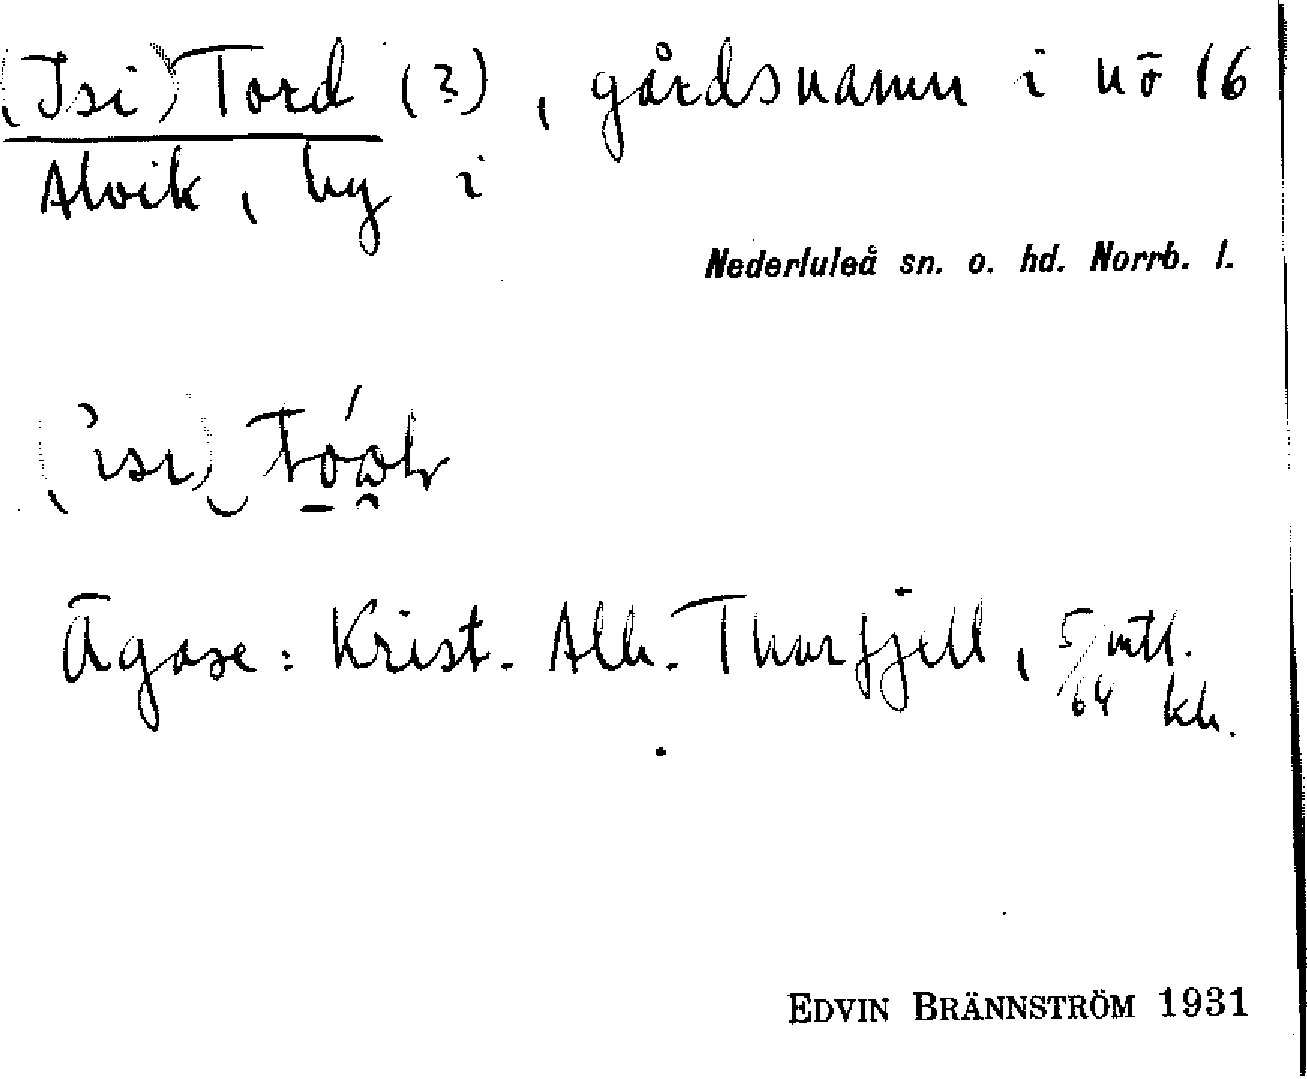 (Isi) Tord (?), gårdsnamn i nö 16
Alvik, by i
Nederluleå sn. o. hd. Norrb. l.
Ägare: Krist. Alb. Thorfjell, 5/64 mtl. kh.
EDVIN BRÄNNSTRÖM 1931